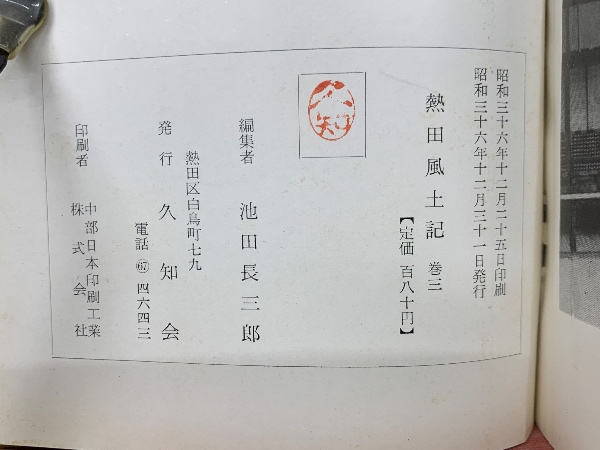 昭和三十六年十二月二十五日印刷
昭和三十六年十二月三十一日発行
熱田風土記 巻三
【定価 百八十円】
久知
編集者 池田長三郎
熱田区白鳥町七九
発行 久知会
電話 67 四六四三
印刷者 中部日本印刷工業
株式会社